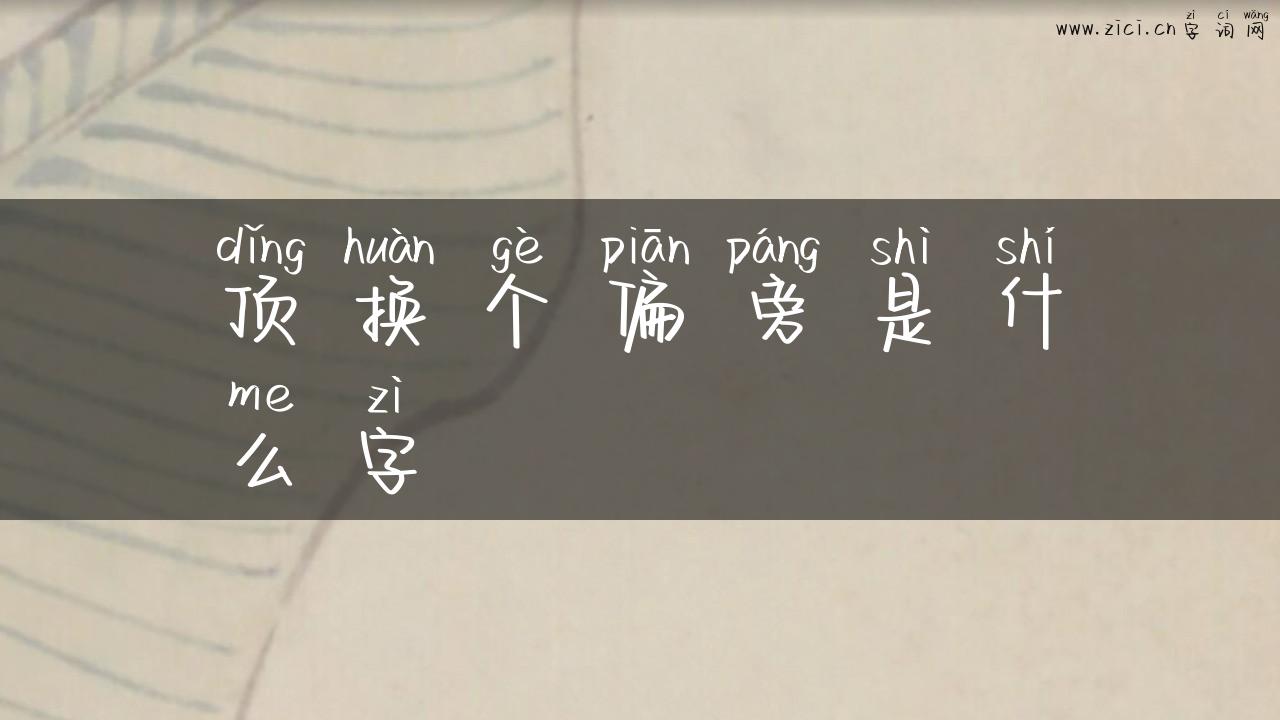 zì cí wǎng
www.zici.cn字词网
dǐng huàn gè piān páng shì shí
顶换个偏旁是什
me zì
么字